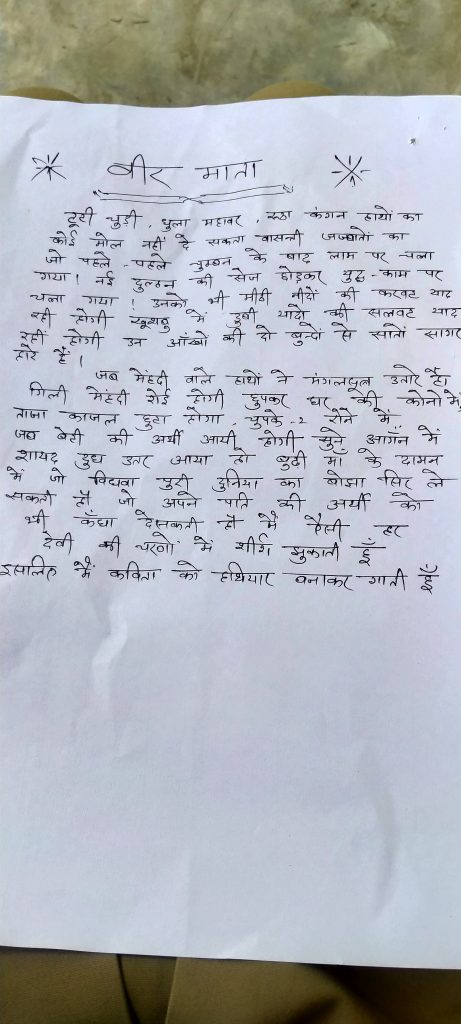 वीर माता
टूटी चुडी, धुला महावर, रूठा कंगन हाथों का
कोई मोल नहीं दे सकता वासन्ती जज्बातों का
जो पहले-पहले चुम्बन के बाद लाम पर चला
गया! नई दुल्हन की सेज छोडकर युद्ध-काम पर
चला गया! उनको भी मीठी नीदों की करवट याद
रही होगी खूशबु में डुबी यादों की सलवट याद
रही होगी उन आँखों की दो बुन्दों से सातों सागर
हारे हैं!
जब मेंहदी वाले हाथों ने मंगलसूत्र उतारे हैं।
गिली मेहदी रोई होगी छुपकर घर की कोनों में,
ताजा काजल छुटा होगा, चुपके-2 रोने में
जब बेटी की अर्थी आयी होगी सुने आगँन में
शायद दुध उतर आया हो बुढी माँ के दामन
में जो विधवा पुरी दुनिया का बोझा सिर ले
सकती हो जो अपने पति की अर्थी को
भी कँधा देसकती हो मैं ऐसी हर
देवी की चरणों में शीर्श झुकाती हूँ
इसालिए मैं कविता को हथियार बनाकर गाती हूँ